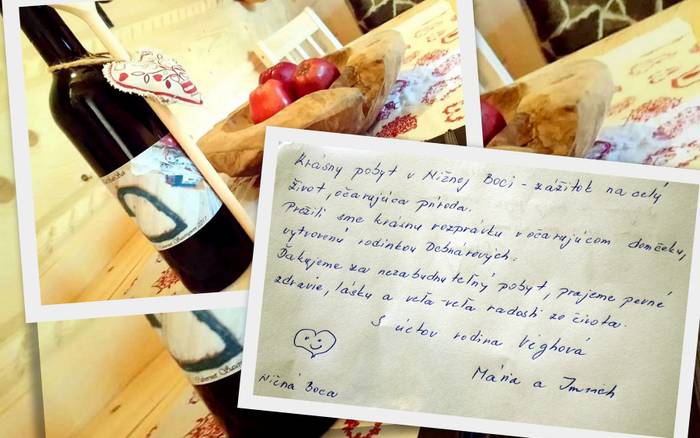 Krásny pobyt v Nižnej Boci - zážitok na celý
život, očarujúca príroda.
Prežili sme krásnu rozprávku v očarujúcom domčeku,
vytvorenú rodinkou Debnárových.
Ďakujeme za nezabudnuteľný pobyt, prajeme pevné
zdravie, lásku a veľa veľa radosti zo života.
S úctou rodina Véghová
Mária a Imrich
Nižná Boca